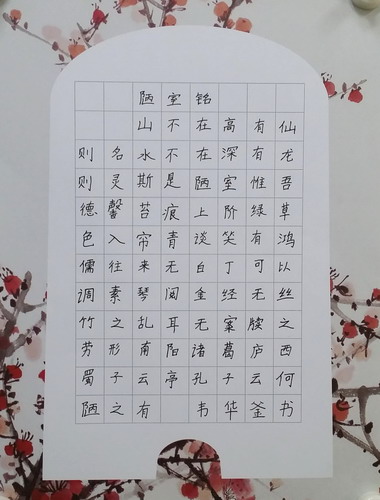 陋室铭
山不在高有仙
则名水不在深有龙
则灵斯是陋室惟吾
德馨苔痕上阶绿草
色入帘青谈笑有鸿
儒往来无白丁可以
调素琴阅金经无丝
竹之乱耳无案牍之
劳形南阳诸葛庐西
蜀子云亭孔子云何
陋之有 韦华釜书